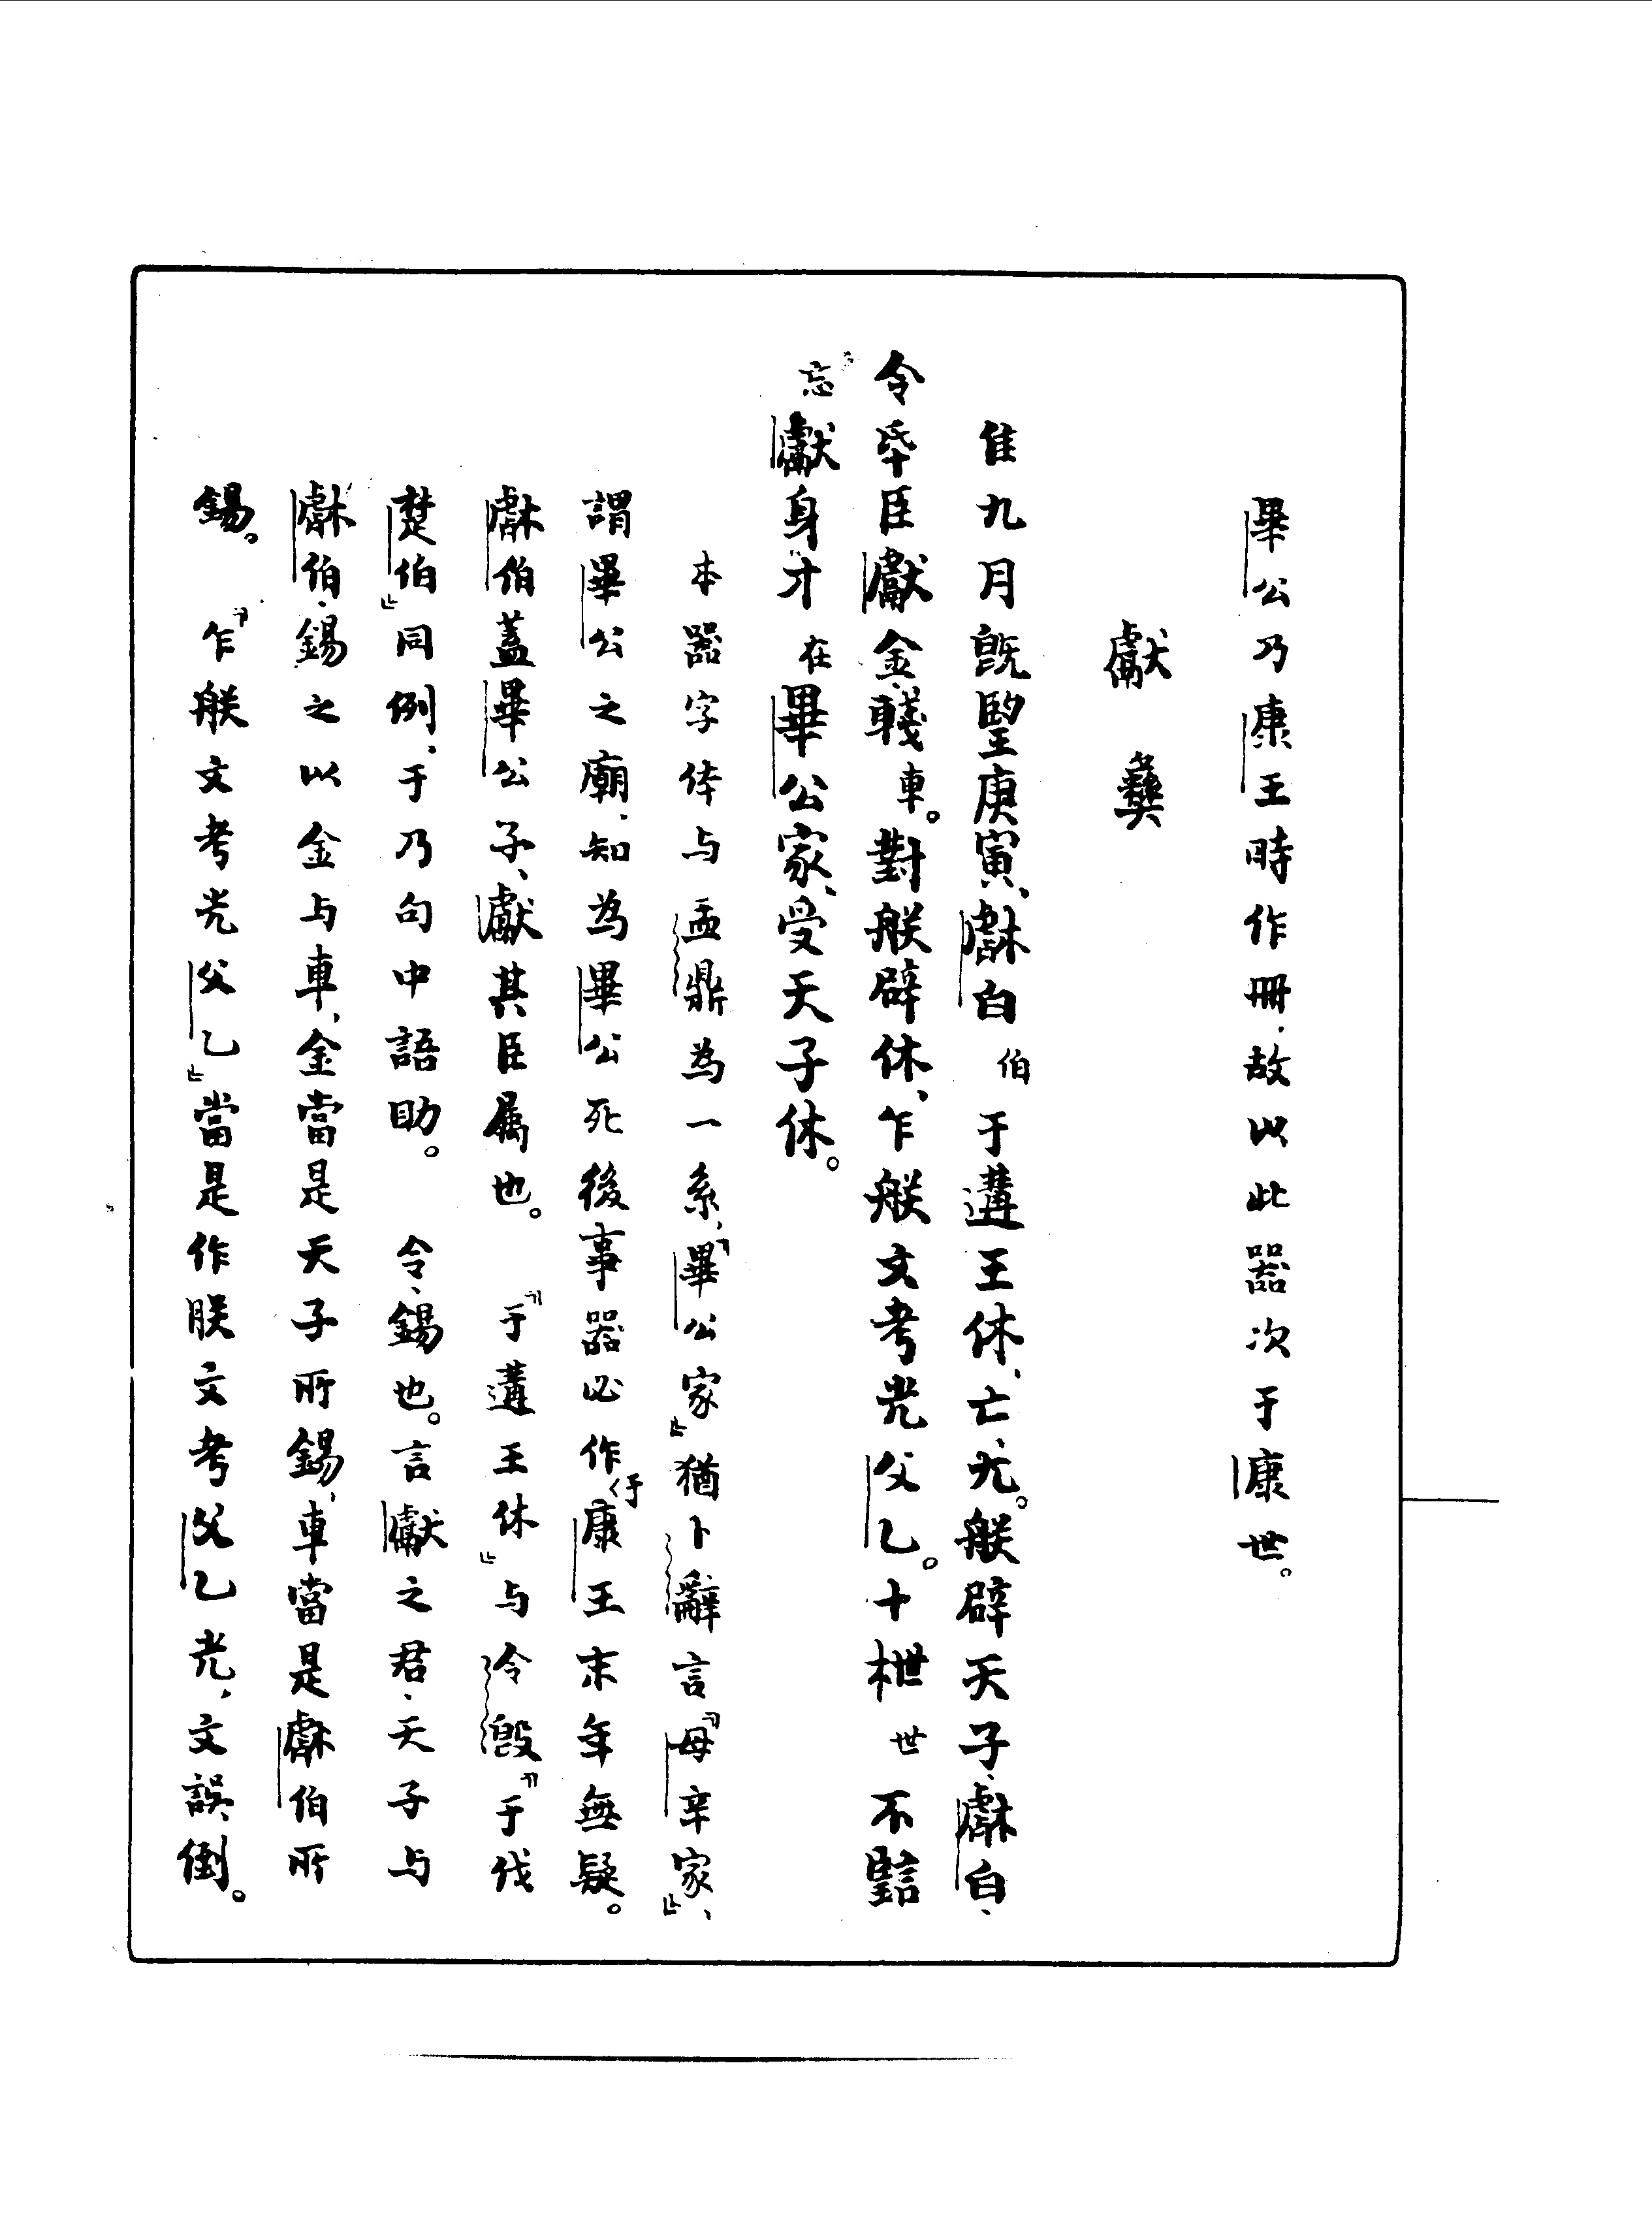 畢公乃康王時作冊，故以此器次于康世。
獻彝
隹九月旣朢庚寅、𣪊白伯于遘王休、亡尤。朕辟天子、白、
令厥臣獻金、車。對朕辟休、乍朕文考光父乙。十枻世不
忘獻身才在畢公家、受天子休。
本器字体与盂鼎為一系，『畢公家』猶卜辭言『母辛家』、
謂畢公之廟，知為畢公死後事，器必作于康王末年無疑。
伯蓋畢公子、獻其臣属也。『于遘王休』与令𣪘『于伐
楚伯』同例，于乃句中語助。令、錫也。言獻之君，天子与
伯，錫之以金与車、金當是天子所錫，車當是伯所
錫。『乍朕文考光父乙』當是作朕文考父乙光，文誤倒。